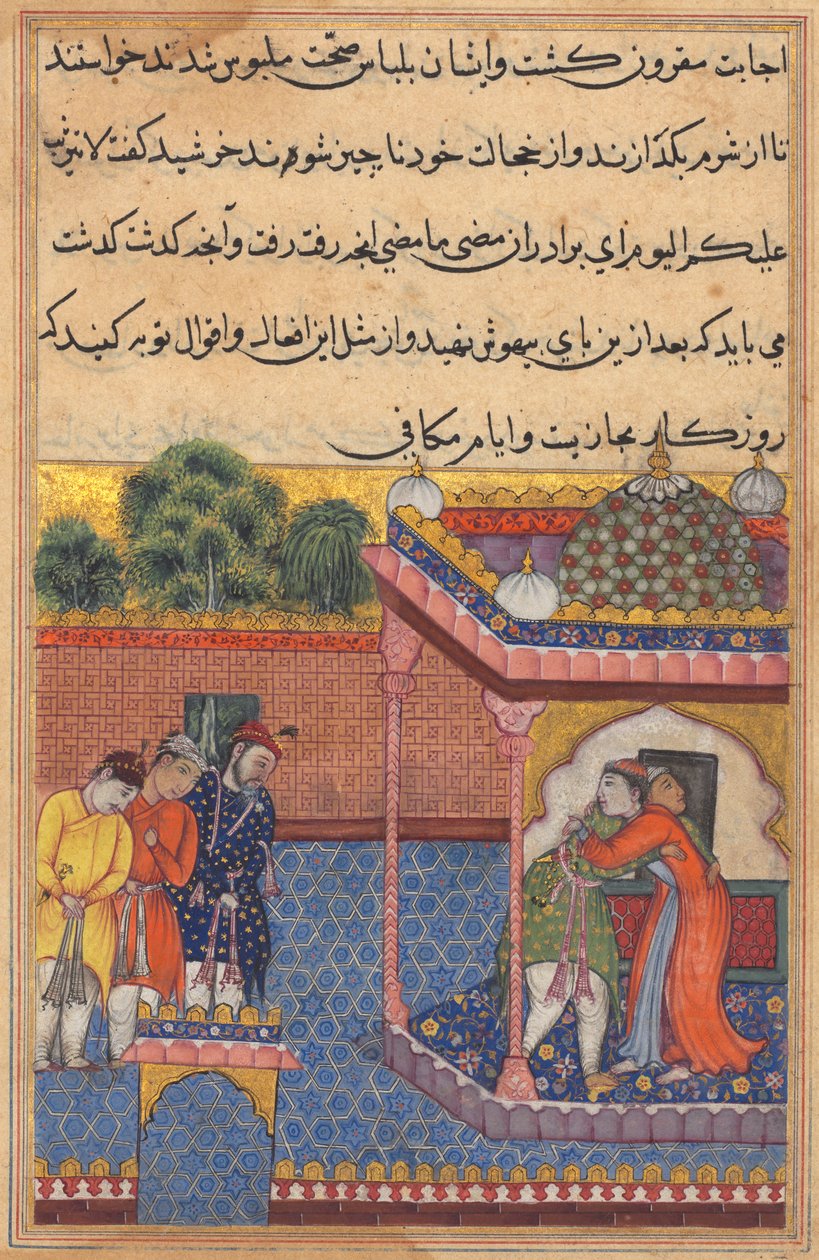 اجابت مقرون کشت وایشان بلباس صحّت ملبوس شدند خواستند
تا از شرم بکدازند و از خجالت خود ناچیز شوند خرشید کفت لا تثریب
علیکم الیوم ای برادران مضی ما مضی انجه رفت رفت وآنجه کدشت کدشت
می باید که بعد ازین پای بیهوش نهید و از مثل این افعال و اقوال توبه کنید که
روزکار مجازیت و ایام مکافی